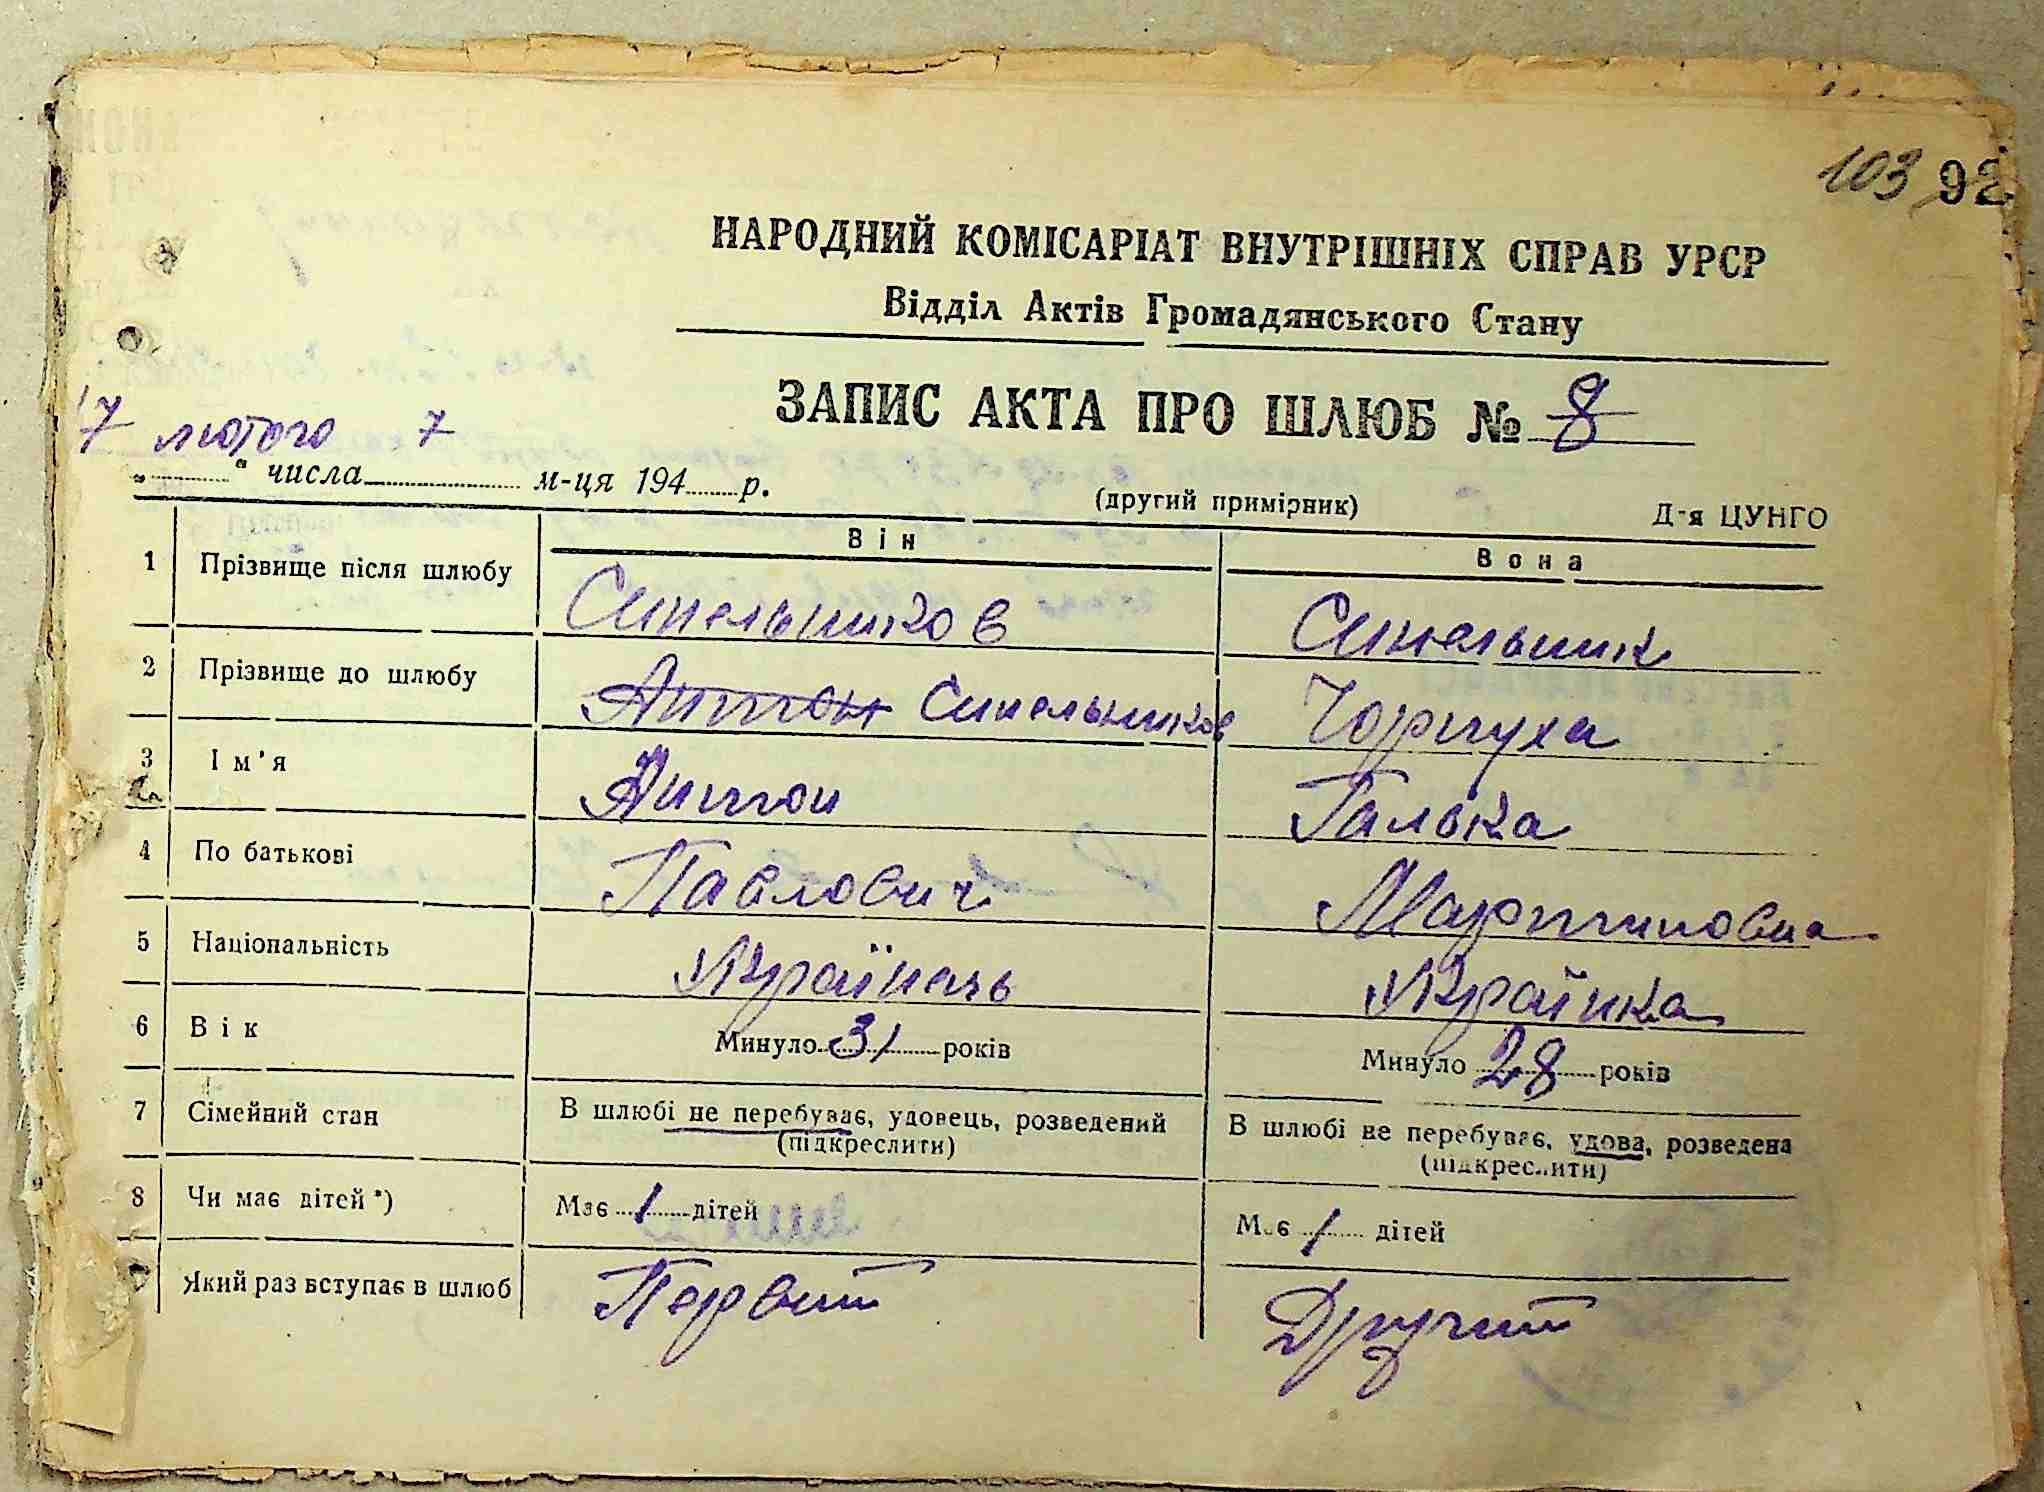 103 92
НАРОДНИЙ КОМІСАРІАТ ВНУТРІШНІХ СПРАВ УРСР
Відділ Актів Громадянського Стану
ЗАПИС АКТА ПРО ШЛЮБ № 8
17 лютого 7
„ “ числа м-ця 194 р.
(другий примірник) Д-я ЦУНГО
Він Вона
1 Прізвище після шлюбу Синельников Синельник
2 Прізвище до шлюбу Антон Синельников Чорнуха
3 Ім'я Антон Галька
4 По батькові Павлович Мартиновна
5 Національність Українець Українка
6 Вік Минуло 31 років Минуло 28 років
7 Сімейний стан В шлюбі не перебуває, удовець, розведений В шлюбі не перебуває, удова, розведена
(підкреслити) (підкреслити)
8 Чи має дітей *) Має 1 дітей Має 1 дітей
Який раз вступає в шлюб Первий Другий